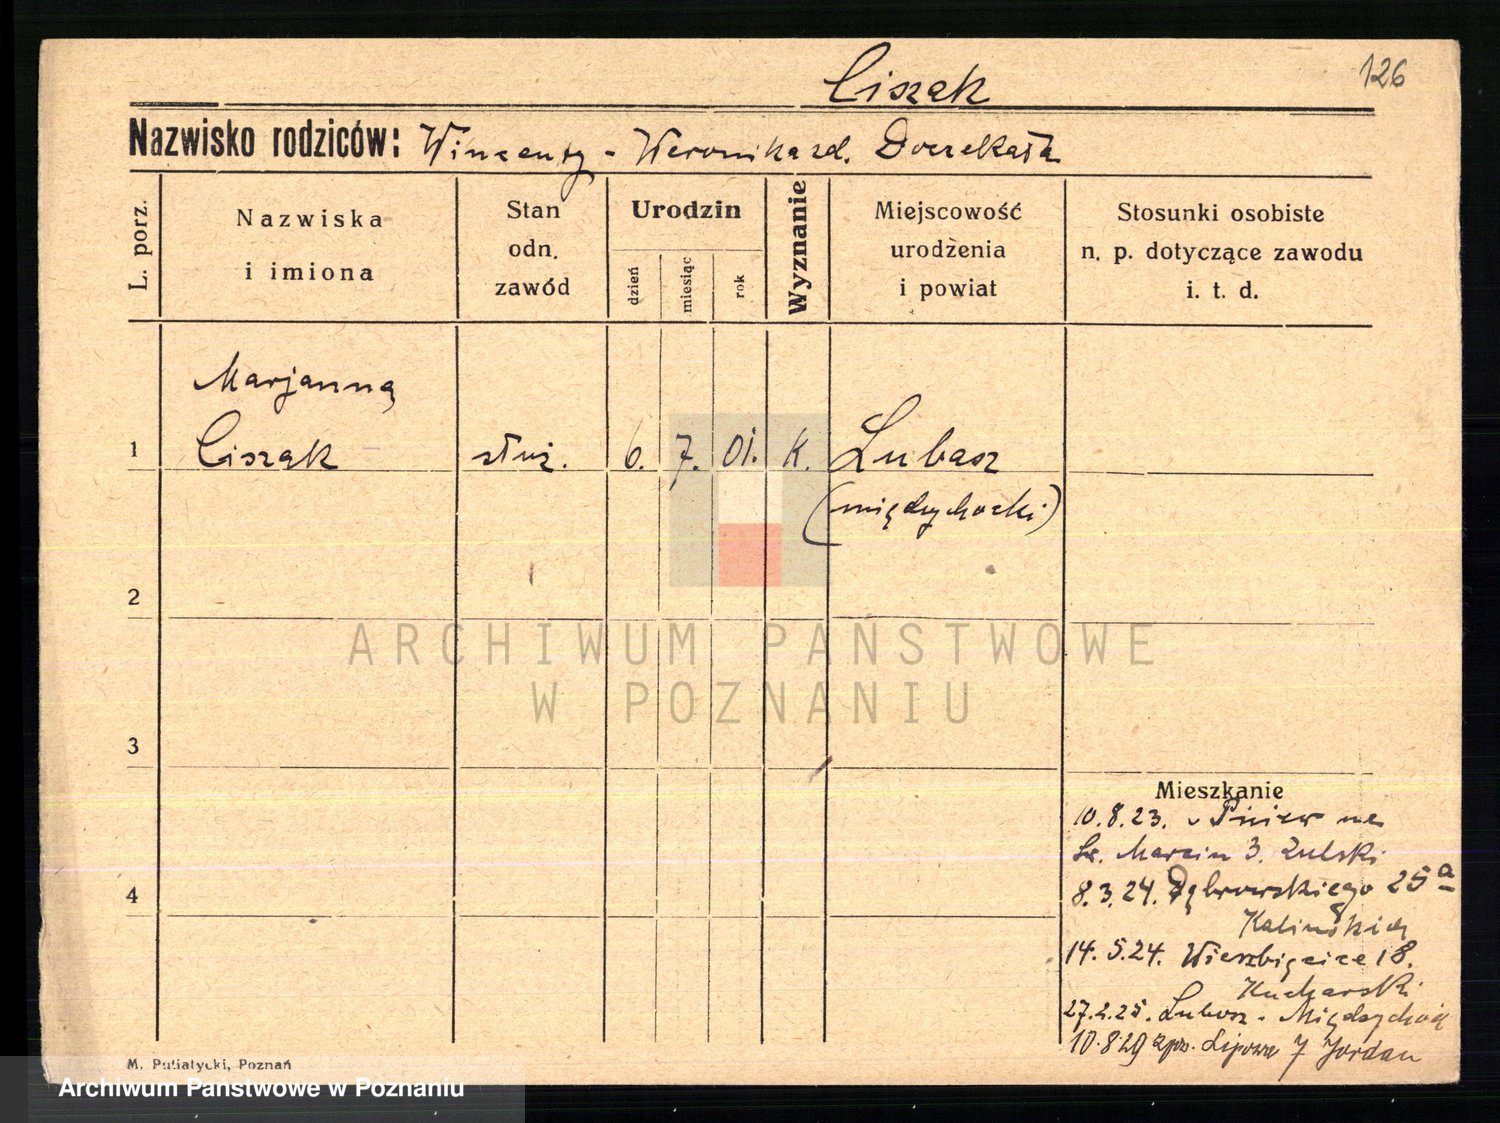 126
Ciszak
Nazwisko rodziców: Wincenty - Weronika zd. Doczekała
L. porz.
Nazwiska
i imiona
Stan
odn.
zawód
Urodzin
dzień
miesiąc
rok
Wyznanie
Miejscowość
urodzenia
i powiat
Stosunki osobiste
n. p. dotyczące zawodu
i. t. d.
Marjanna
1 Ciszak służ. 6. 7. 01. K. Lubosz
(międzychodzki)
2
3
4
Mieszkanie
10.8.23. v Pniew na
Św. Marcin 3. Zulski
8.3.24. Dąbrowskiego 25a
Kalińskich
14.5.24. Wierzbięcice 18.
Kucharski
27.2.25. Lubosz - Międzychód
10.8.29 Lipowa 7 Jordan
M. Putiatycki, Poznań
ARCHIWUM PAŃSTWOWE
W POZNANIU
Archiwum Państwowe w Poznaniu